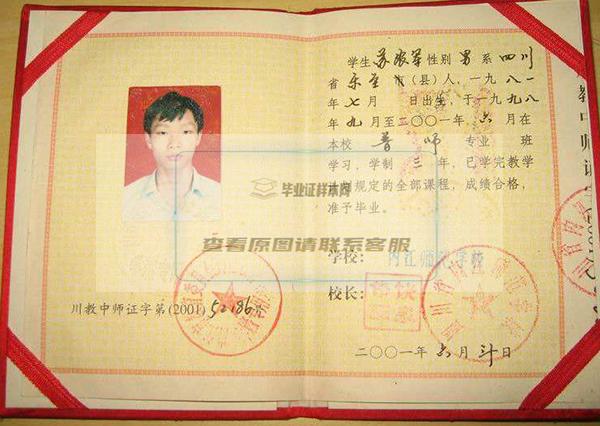 学生苏农军性别男系四川
省乐至市(县)人,一九八一
年七月 日出生,于一九九八
年九月至二〇〇一年六月在
本校 普师 专业 班
学习,学制三年,已学完教学
计划规定的全部课程,成绩合格,
准予毕业。
毕业证样本网
查看原图请联系客服
学校:内江师范学校
校长:
川教中师证字第(2001)52186号
二〇〇一年六月 日